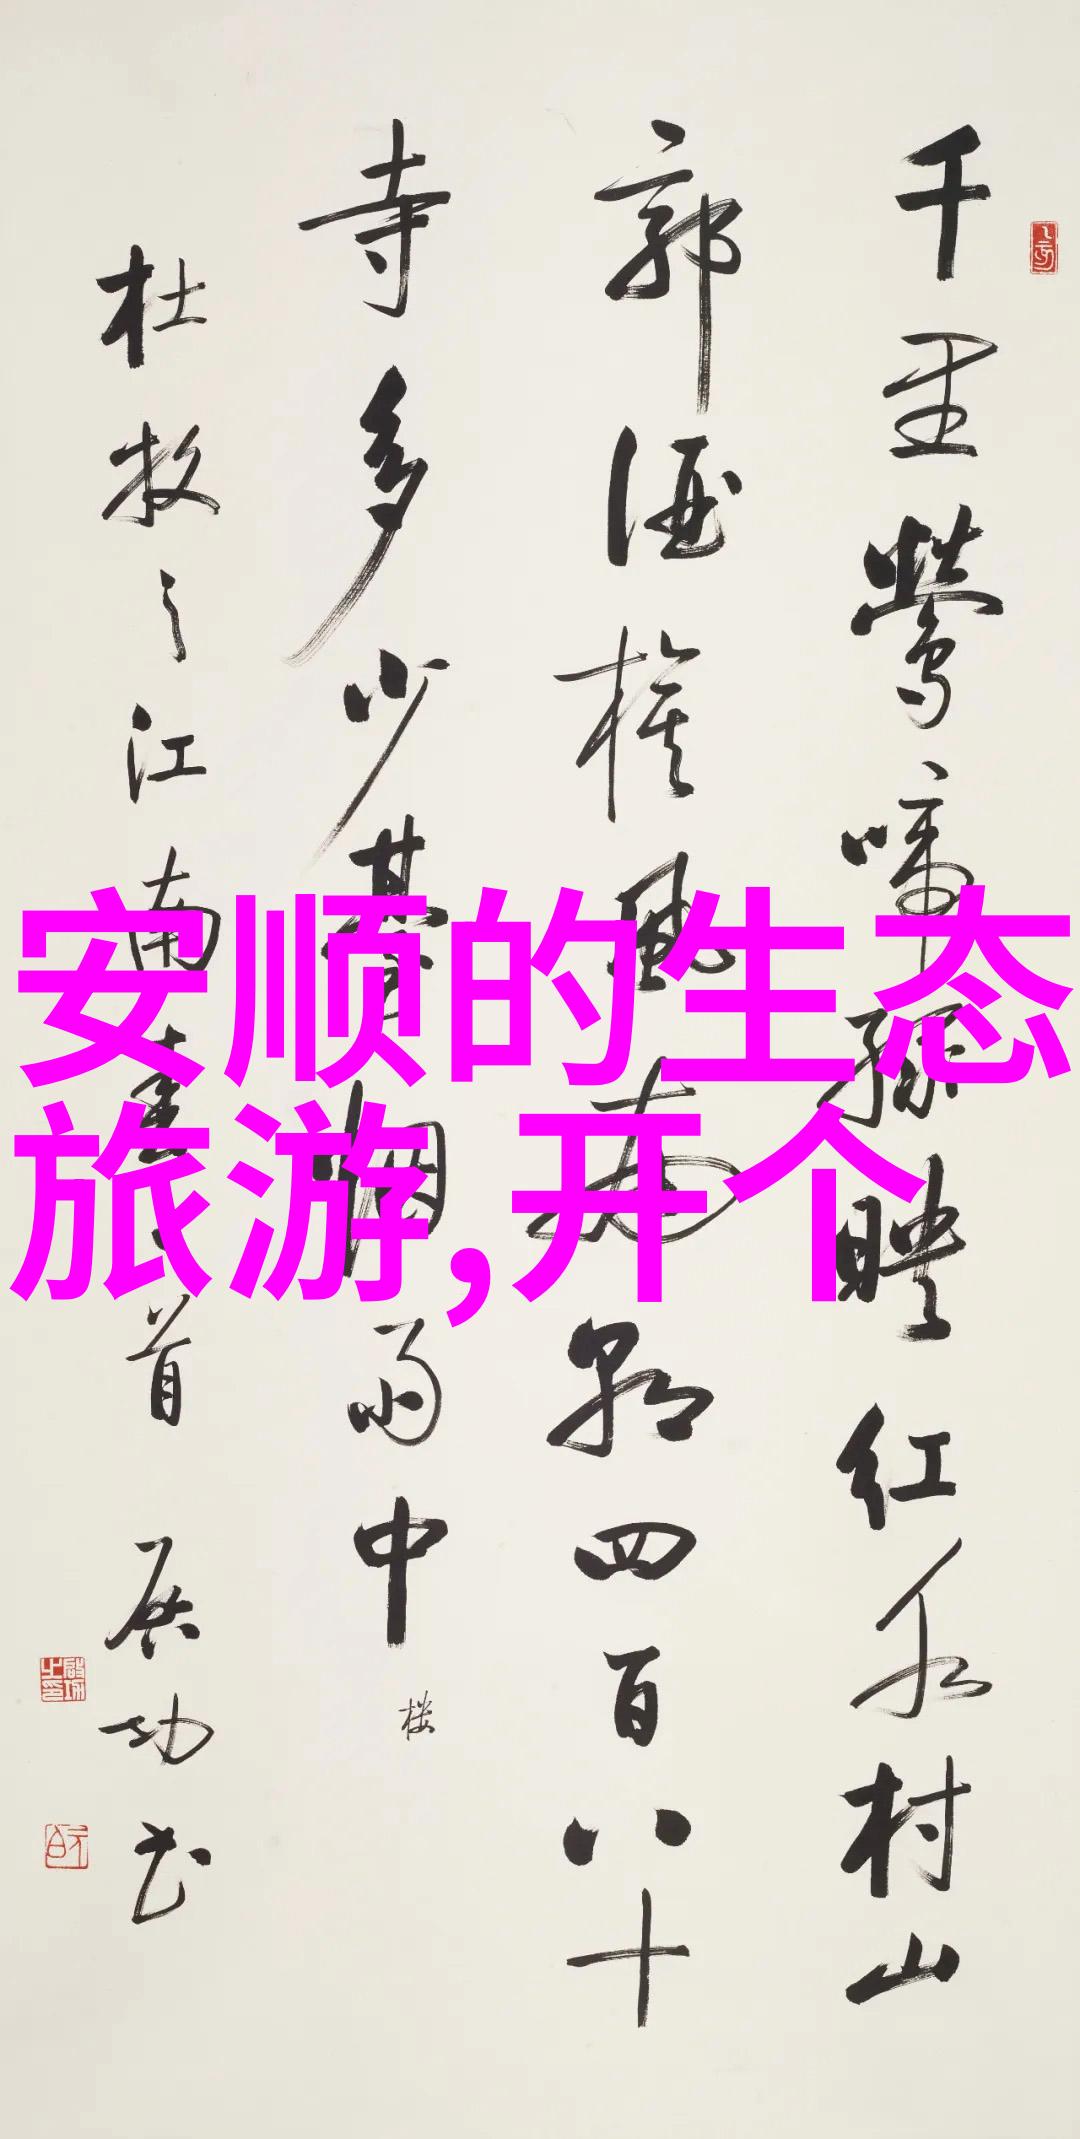 千里莺啼绿映红水村山
郭酒旗风南朝四百八十
寺多少臺烟雨中
楼
杜牧之江南春一首 启功书
启功之印
安顺的生态
旅游,开个